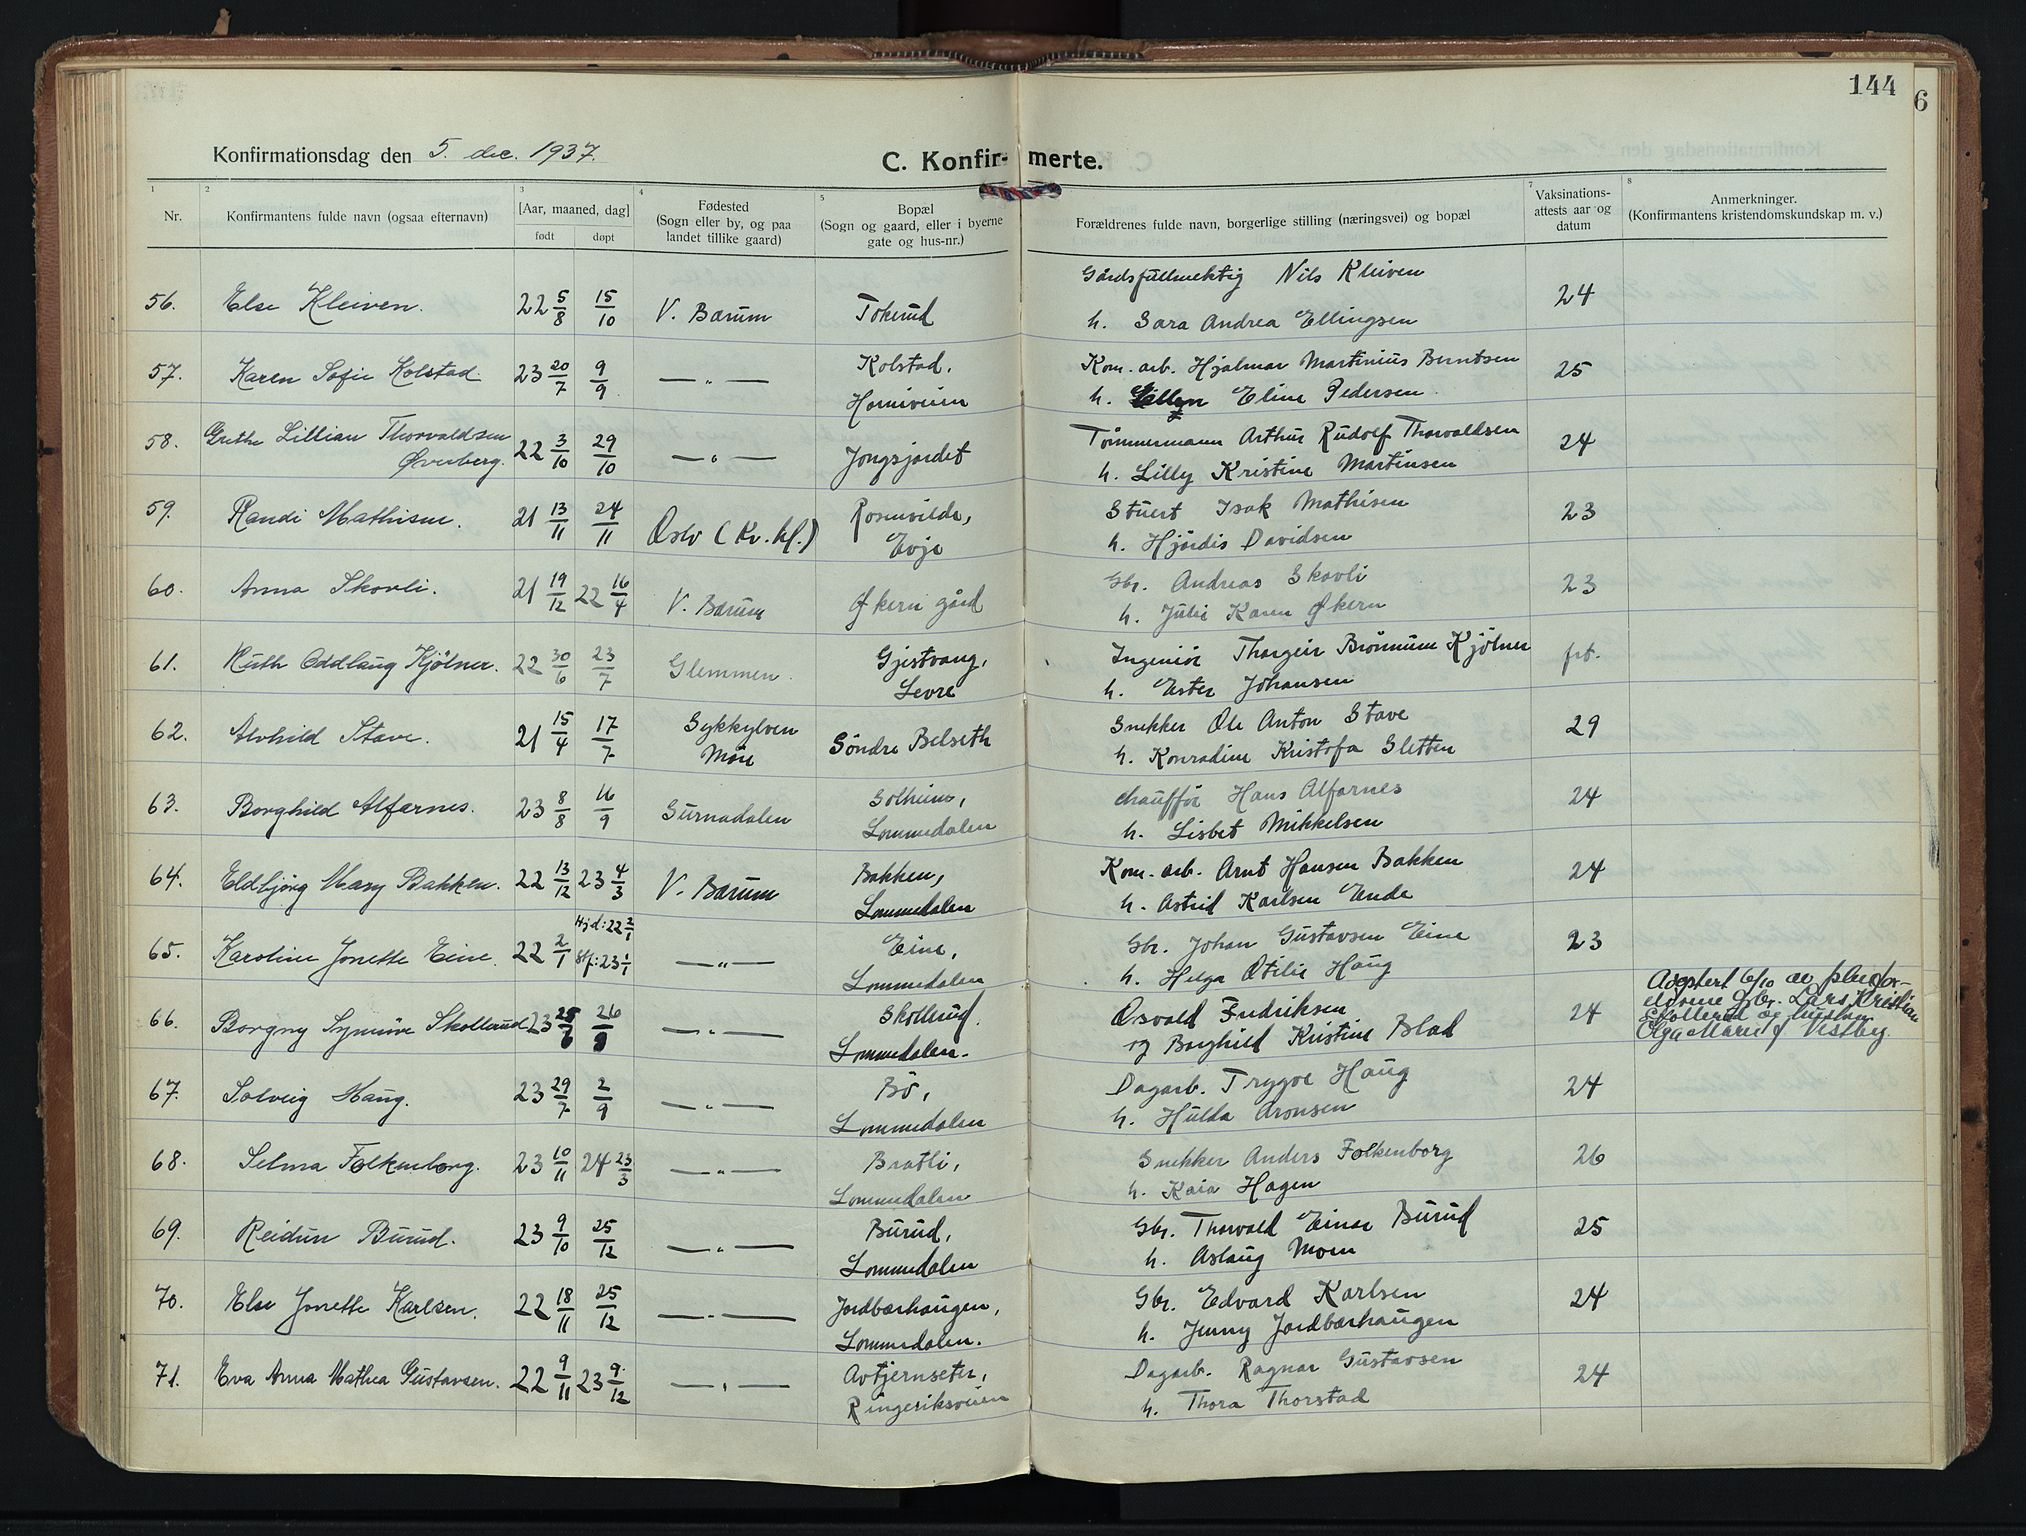 144
6
Konfirmationsdag den 5. dec. 1937.
C. Konfir- merte.
1 2 3 4 5 7 8
Nr.
Konfirmantens fulde navn (ogsaa efternavn)
[Aar, maaned, dag]
født døpt
Fødested
(Sogn eller by, og paa
landet tillike gaard)
Bopæl
(Sogn og gaard, eller i byerne
gate og hus-nr.)
Forældrenes fulde navn, borgerlige stilling (næringsvei) og bopæl
Vaksinations-
attests aar og
datum
Anmerkninger.
(Konfirmantens kristendomskundskap m. v.)
Gårdsfullmektig Nils Kleiven
56. Else Kleiven. 22 5/8 15/10 V. Bærum Tokerud 24
h. Sara Andrea Ellingsen
57. Karen Sofie Kolstad. 23 20/7 9/9 —„— Kolstad, Kom. arb. Hjalmar Martinius Berntsen 25
Horniveien h. Eline Pedersen.
58. Grethe Lillian Thorvaldsen 22 3/10 29/10 —„— Jongsjordet Tømmermann Arthur Rudolf Thorvaldsen 24
Øverberg. h. Lilly Kristine Martinsen
59. Randi Mathisen. 21 13/11 24/11 Oslo (Kv. kl.) Rosenvilde, Stuert Isak Mathisen 23
Evje h. Hjørdis Davidsen
60. Anna Skovli. 21 19/12 22 16/4 V. Bærum Økern gård Gbr. Andreas Skovli 23
h. Julie Karen Økern
61. Ruth Oddlaug Kjølner. 22 30/6 23/7 Glemmen. Gjestvang, Ingeniør Thorgeir Brønnum Kjølner frt.
Levre h. Ester Johansen
62. Alvhild Stave. 21 15/4 17/7 Sykkylven Søndre Belseth Snekker Ole Anton Stave 29
Møre h. Konradine Kristofa Sletten
63. Borghild Alfarnes. 23 8/8 16/9 Surnadalen Solheim, Chauffør Hans Alfarnes 24
Lommedalen h. Lisbet Mikkelsen
64. Eldbjørg Mary Bakken. 22 13/12 23 4/3 V. Bærum Bakken, Kom. arb. Arnt Hansen Bakken 24
Lommedalen h. Astrid Karlsen Ende
Hjd: 22 2/1
65. Karoline Jonette Eine. 22 2/1 Stf: 23 1/1 —„— Eine, Gbr. Johan Gustavsen Eine 23
Lommedalen h. Helga Otilie Haug
66. Borgny Synnøve Skollerud 23 —„— Skollerud. Osvald Fredriksen 24
Lommedalen. og Borghild Kristine Blad
Adoptert 6/10 av pleiefor-
eldrene Gbr. Lars Kristian
Skollerud og hustru
Olga Marie f Vestby.
67. Solveig Haug. 23 29/7 2/9 —„— Bø, Dagarb. Trygve Haug 24
Lommedalen h. Hulda Aronsen
68. Selma Folkenborg. 23 10/11 24 23/3 —„— Bratli, Snekker Anders Folkenborg 26
Lommedalen h. Kaia Hagen
69. Reidun Burud. 23 9/10 25/12 —„— Burud, Gbr. Thorvald Einar Burud 25
Lommedalen h. Aslaug Moen
70. Else Jonette Karlsen. 22 18/11 25/12 —„— Jordbærhaugen, Gbr. Edvard Karlsen 24
Lommedalen. h. Jenny Jordbærhaugen
71. Eva Anna Mathea Gustavsen. 22 9/11 23 9/12 —„— Avtjernseter, Dagarb. Ragnar Gustavsen 24
Ringeriksveien h. Thora Thorstad